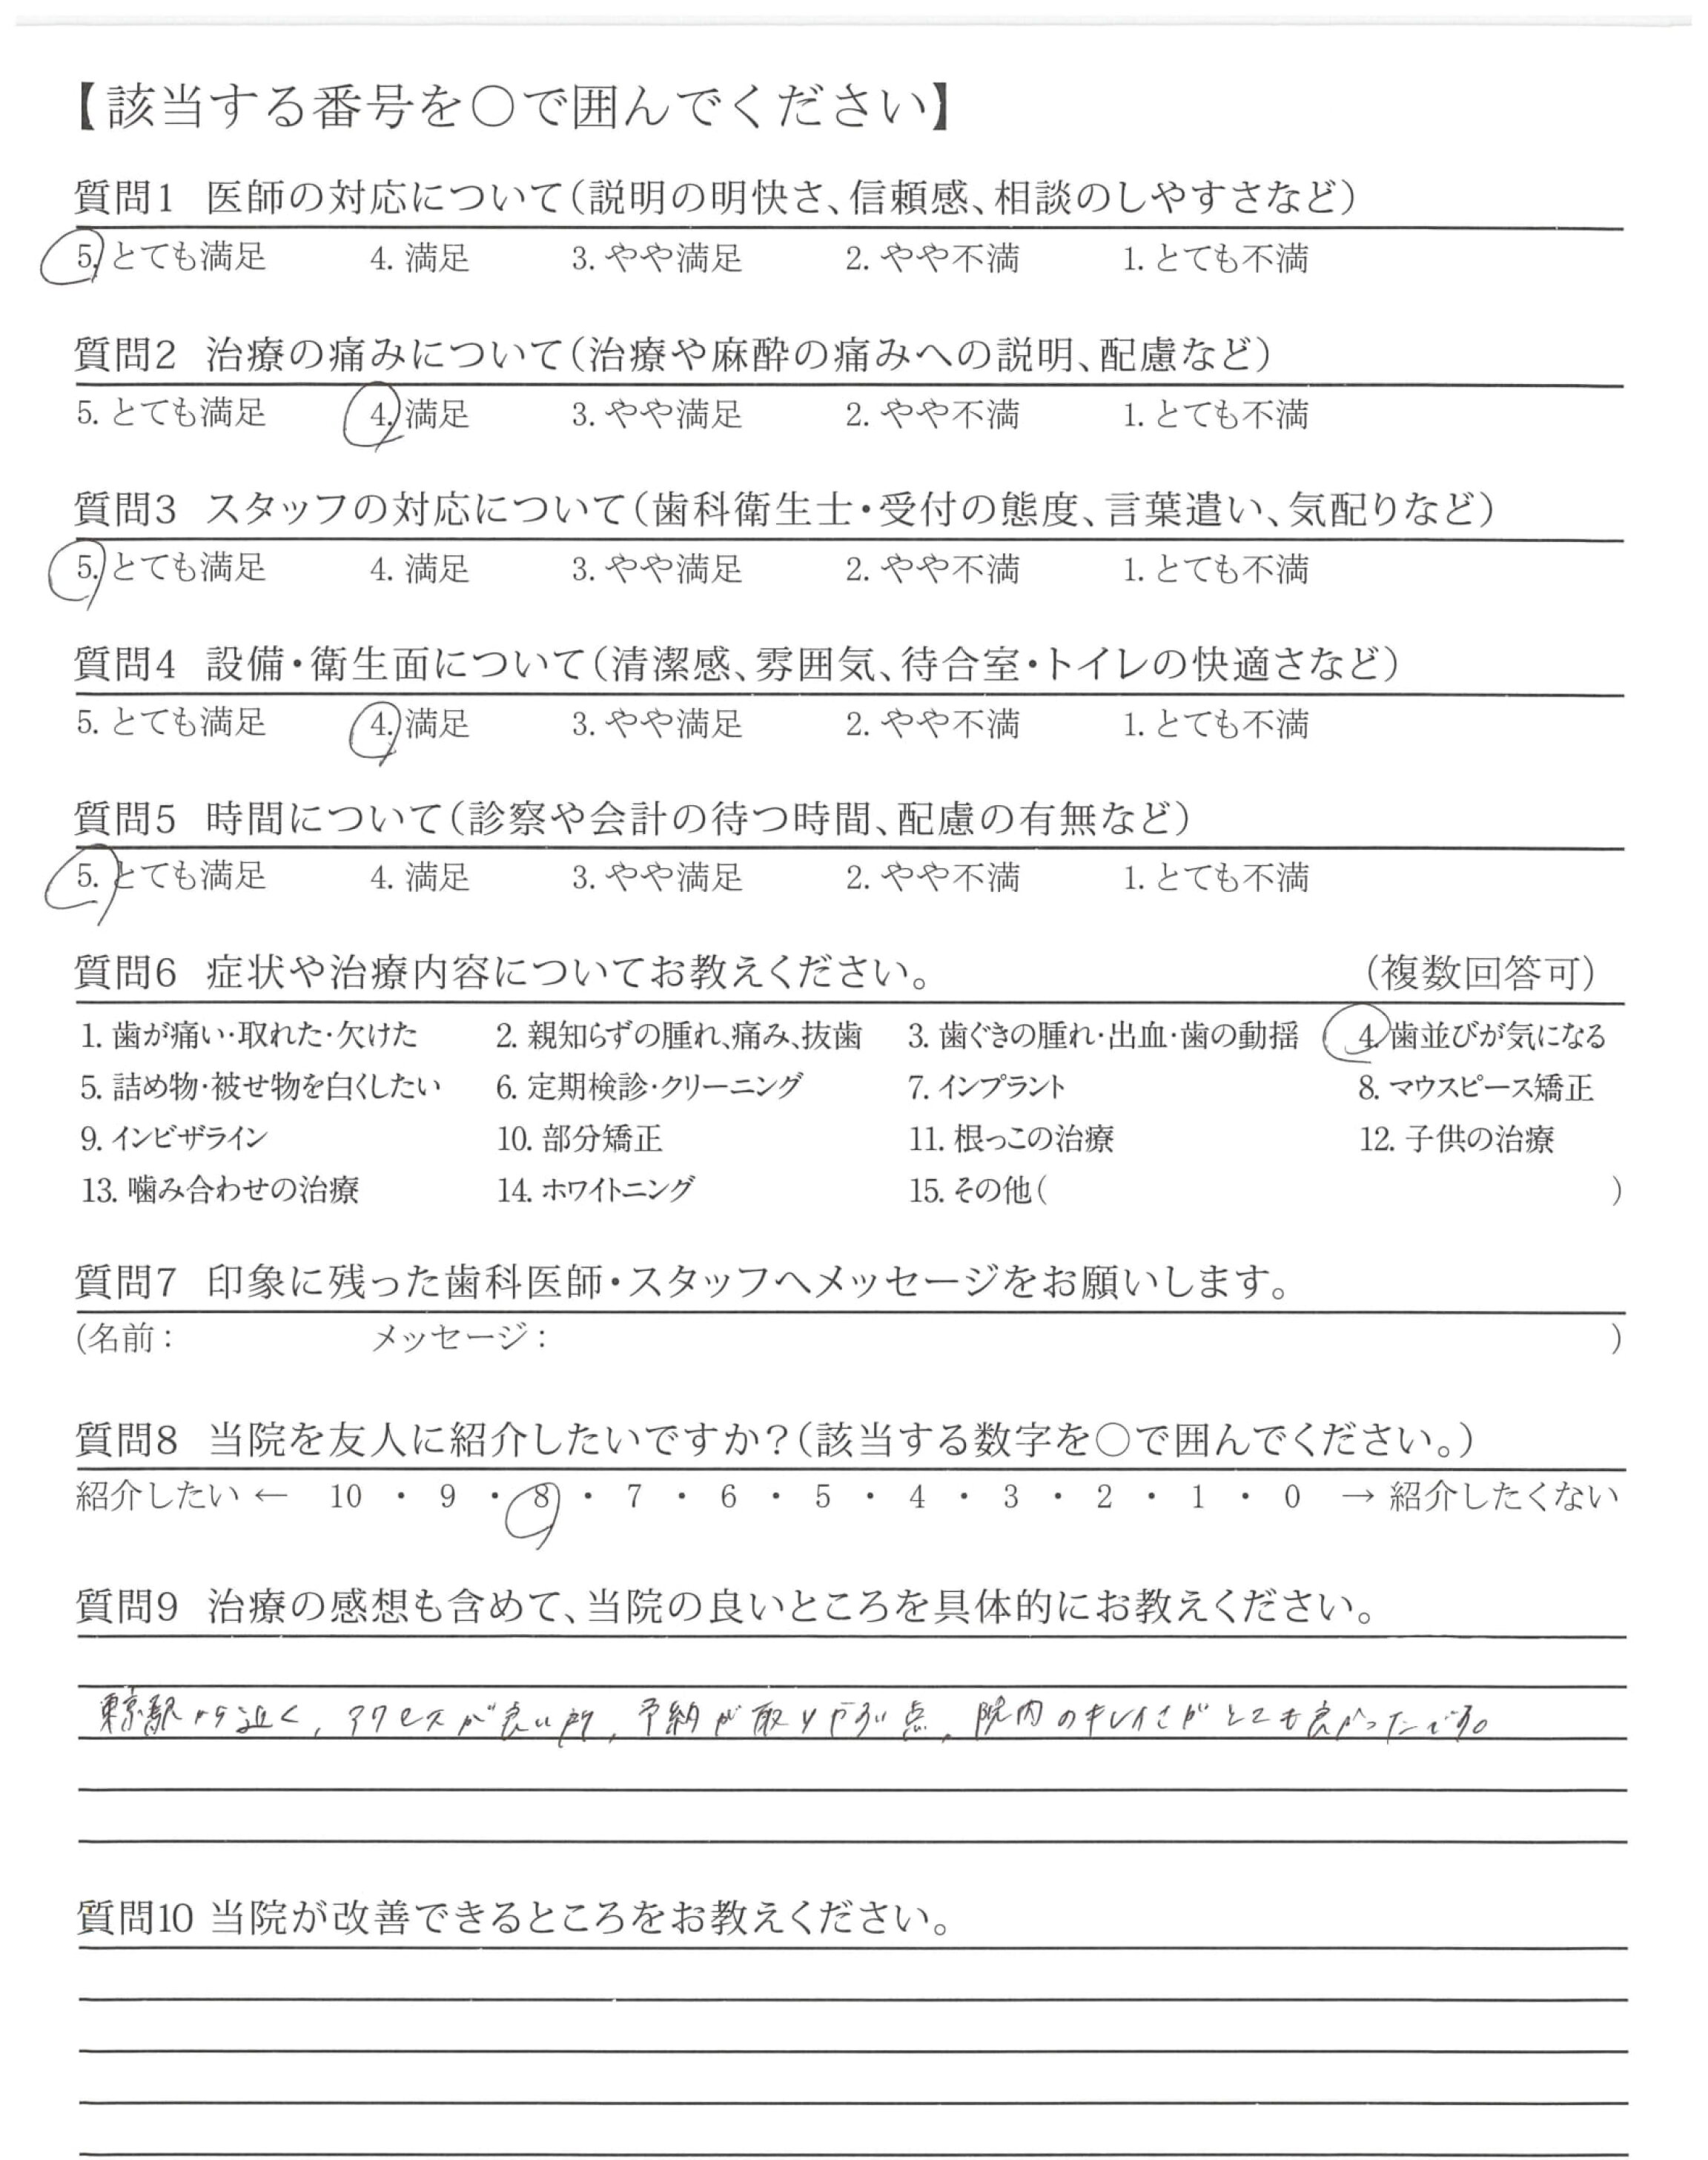 【該当する番号を○で囲んでください】
質問1 医師の対応について(説明の明快さ、信頼感、相談のしやすさなど)
5. とても満足 4. 満足 3. やや満足 2. やや不満 1. とても不満
質問2 治療の痛みについて(治療や麻酔の痛みへの説明、配慮など)
5. とても満足 4. 満足 3. やや満足 2. やや不満 1. とても不満
質問3 スタッフの対応について(歯科衛生士・受付の態度、言葉遣い、気配りなど)
5. とても満足 4. 満足 3. やや満足 2. やや不満 1. とても不満
質問4 設備・衛生面について(清潔感、雰囲気、待合室・トイレの快適さなど)
5. とても満足 4. 満足 3. やや満足 2. やや不満 1. とても不満
質問5 時間について(診察や会計の待つ時間、配慮の有無など)
5. とても満足 4. 満足 3. やや満足 2. やや不満 1. とても不満
質問6 症状や治療内容についてお教えください。 (複数回答可)
1. 歯が痛い・取れた・欠けた 2. 親知らずの腫れ、痛み、抜歯 3. 歯ぐきの腫れ・出血・歯の動揺 4. 歯並びが気になる
5. 詰め物・被せ物を白くしたい 6. 定期検診・クリーニング 7. インプラント 8. マウスピース矯正
9. インビザライン 10. 部分矯正 11. 根っこの治療 12. 子供の治療
13. 噛み合わせの治療 14. ホワイトニング 15. その他( )
質問7 印象に残った歯科医師・スタッフへメッセージをお願いします。
(名前: メッセージ: )
質問8 当院を友人に紹介したいですか?(該当する数字を○で囲んでください。)
紹介したい ← 10 ・ 9 ・ 8 ・ 7 ・ 6 ・ 5 ・ 4 ・ 3 ・ 2 ・ 1 ・ 0 → 紹介したくない
質問9 治療の感想も含めて、当院の良いところを具体的にお教えください。
東京駅から近く、アクセスが良い所、予約が取りやすい点、院内のキレイさがとても良かったです。
質問10 当院が改善できるところをお教えください。